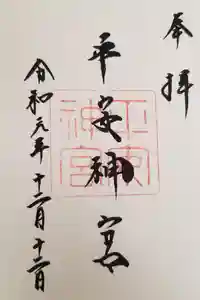 奉拝
平安神宮
平安
神宮
令和元年十二月十二日